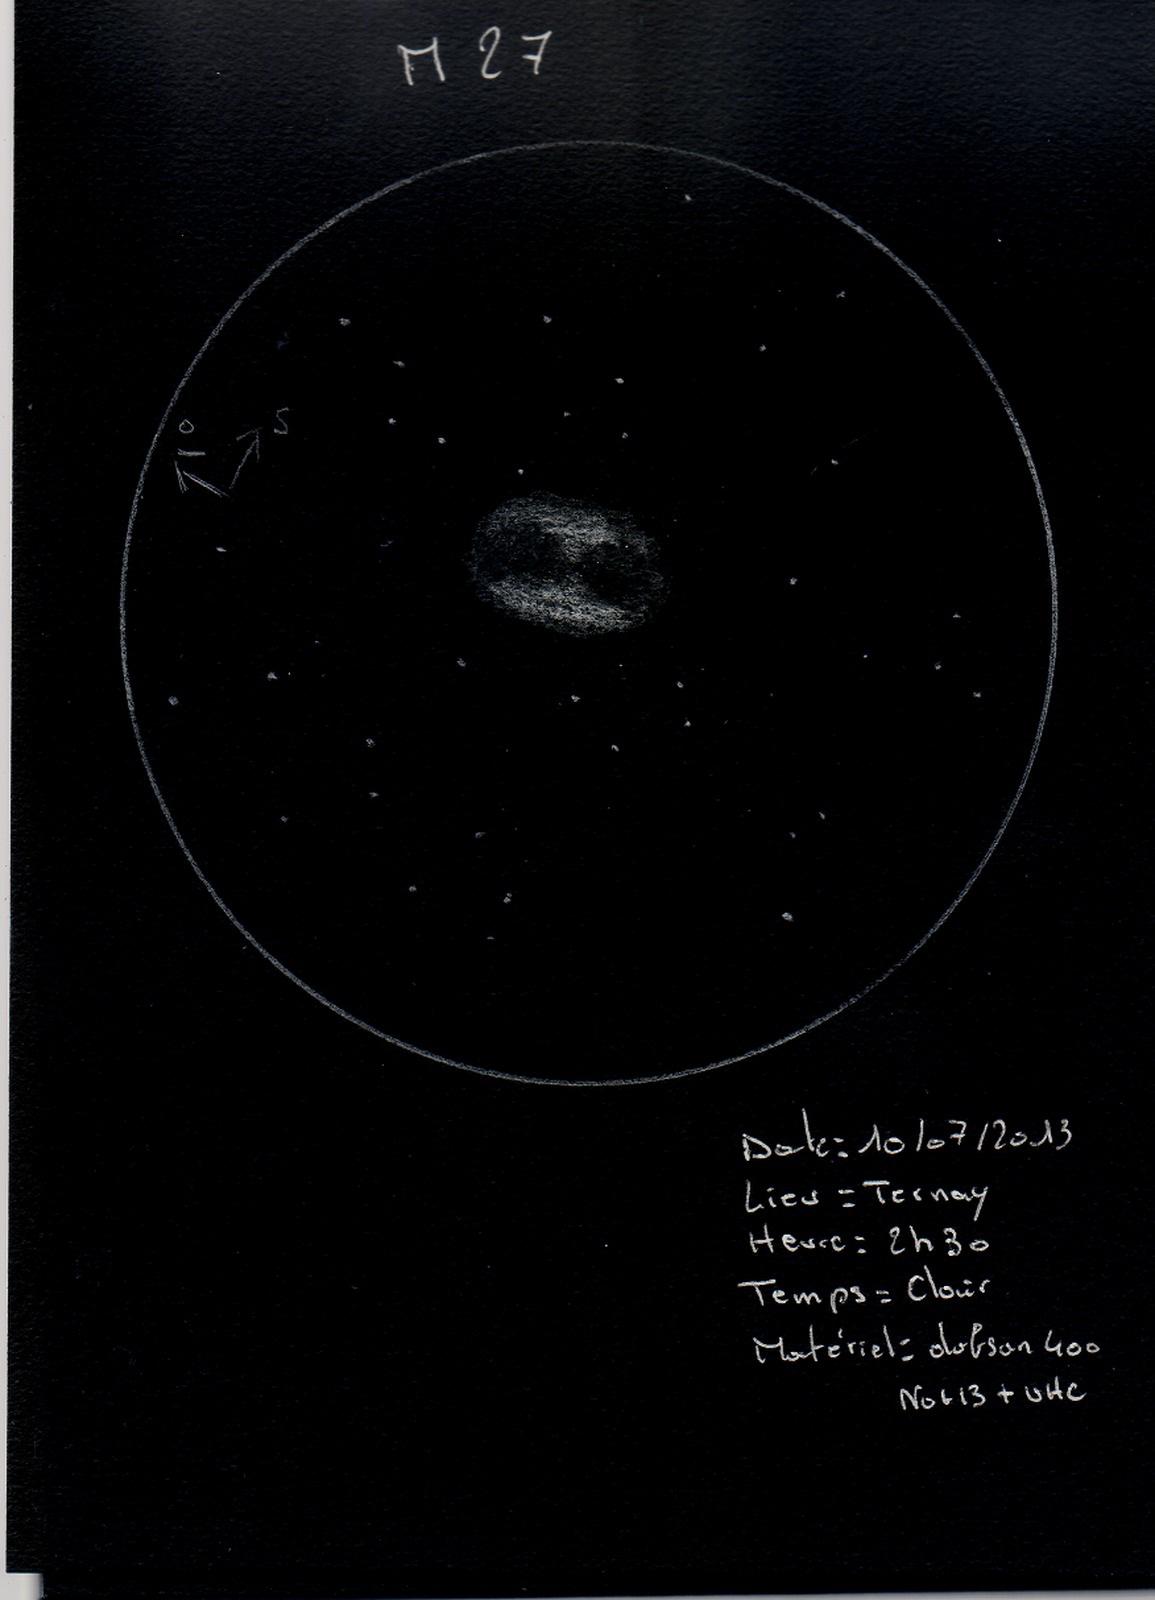 M 27
O
S
Date = 10/07/2013
Lieu = Ternay
Heure = 2h30
Temps = Clair
Matériel = dobson 400
N0613 + UHC